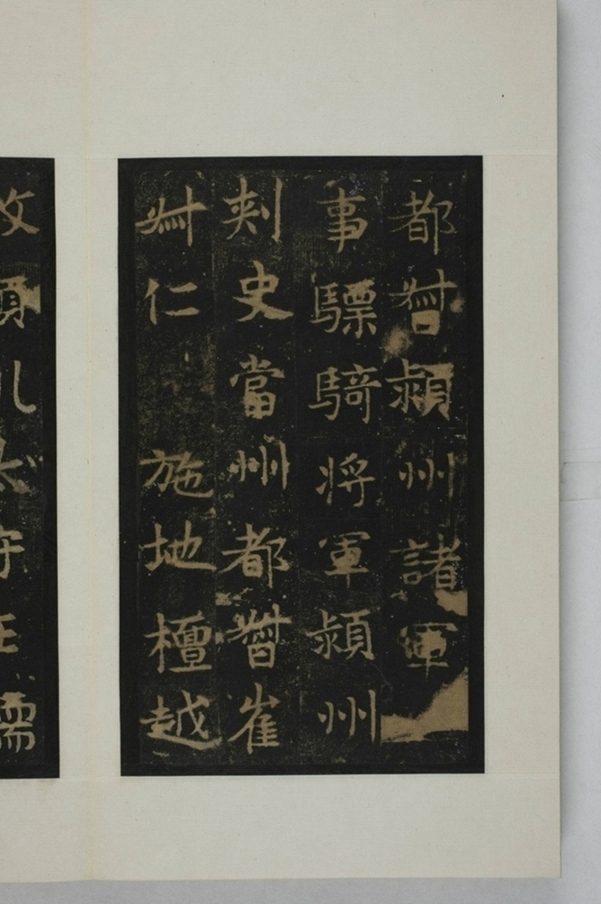 都督潁州諸軍
事驃騎将軍潁州
刾史當州都督崔
叔仁 施地檀越